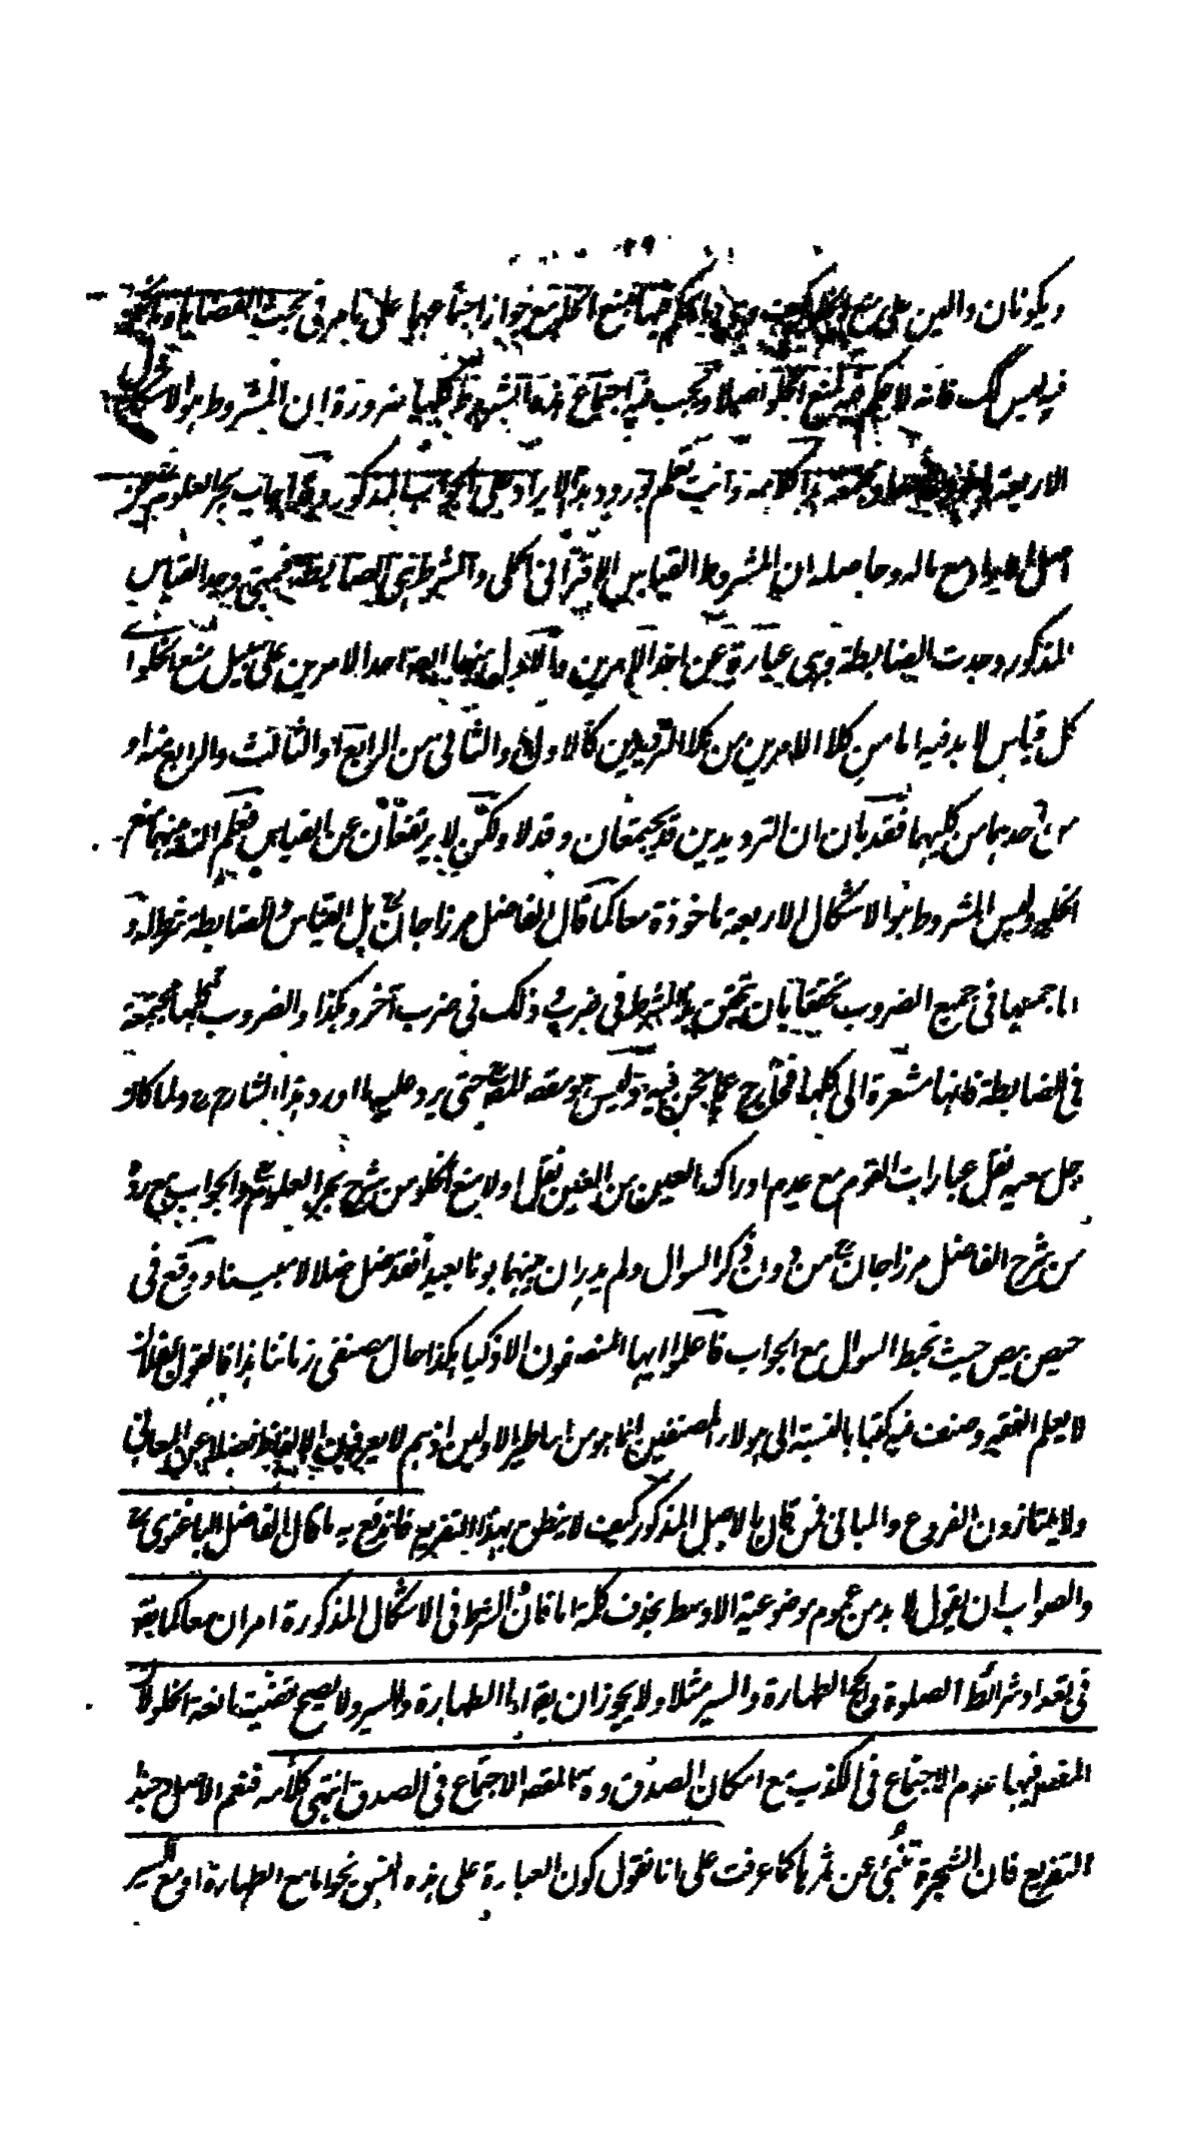 ويكونان دالين على منع الخلو مع جواز اجتماعهما على ما مر فى بحث القضايا وما نحن
فيه ليس كك فانه لا حكم فيه لمنع الخلو اصلا ويجب فيه اجتماع هذه الشروط كلها ضرورة ان المشروط هو الاشكال
الاربعة وانت تعلم ورود هذا الايراد على الجواب المذكور وقد اجاب بحر العلوم
اصل الايراد مع ماله وحاصله ان المشروط القياس الاقترانى الحملى والشرط هى الضابطة فمتى وجد القياس
المذكور وجدت الضابطة وهى عبارة عن احد الامرين مالاول منهما ايضا احد الامرين على سبيل منع الخلو اذ
كل قياس لا بد فيه اما من كلا الامرين من كلا الترديدين كالاول والثانى من الرابع او الثالث والرابع منه او
من احدهما من كليهما فقد بان ان الترديدين قد يجتمعان وقد لا ولكن لا يرتفعان عن القياس فعلم ان بينهما منع
الخلو وليس المشروط هو الاشكال الاربعة ماخوذة معا كما قال الفاضل مرزاجان بل القياس والضابطة شرط له و
اما جميعها فى جميع الضروب تحققا بان يتحقق هذا الشرط فى ضرب وذلك فى ضرب آخر وهكذا والضروب كلها مجتمعة
فى الضابطة فانها مشعرة الى كلها فخارج عما نحن فيه وليس هو مقصد المص حتى يرد عليه ما اورد هذا الشارح ولما كان
جل سعيه نقل عبارات القوم مع عدم ادراك العين من الغين نقل اولا منع الخلو من شرح بحر العلوم والجواب مع رده
من شرح الفاضل مرزاجان من وان ذكر السوال ولم يدر ان بينهما بونا بعيدا فقد ضل ضلالا مبينا ووقع فى
حيص بيص حيث خبط السوال مع الجواب فاعلموا ايها المنصفون الاذكيا هكذا حال مصنفى زماننا هذا فالقول بفلان
لا يعلم الفقه وصنف فيه كتبا بالنسبة الى هولاء المصنفين انما هو من اساطير الاولين اذ هم لا يعرفون الالفاظ فضلا عن المعانى
ولا يمتازون الفروع والمبانى فمن قال بالاصل المذكور كيف لا ينطق بهذا التفريع فاندفع به ما قال الفاضل الباغنوى
والصواب ان يقول لا بد من عموم موضوعية الاوسط بحذف كلمة اما فان الشرط فى الاشكال المذكورة امران معا كما يقال
فى تعداد شرائط الصلوة والحج الطهارة والسير مثلا ولا يجوز ان يقال اما الطهارة والسير ولا يصح قضية مانعة الخلو لان
المقصد فيها عدم الاجتماع فى الكذب مع امكان الصدق وههنا المقصد الاجتماع فى الصدق انتهى كلامه فنعم الاصل حبذا
التفريع فان الشجرة تنبئ عن ثمرها كما عرفت على انا نقول كون العبارة على هذه ليس نحو اما مع الطهارة او مع السير